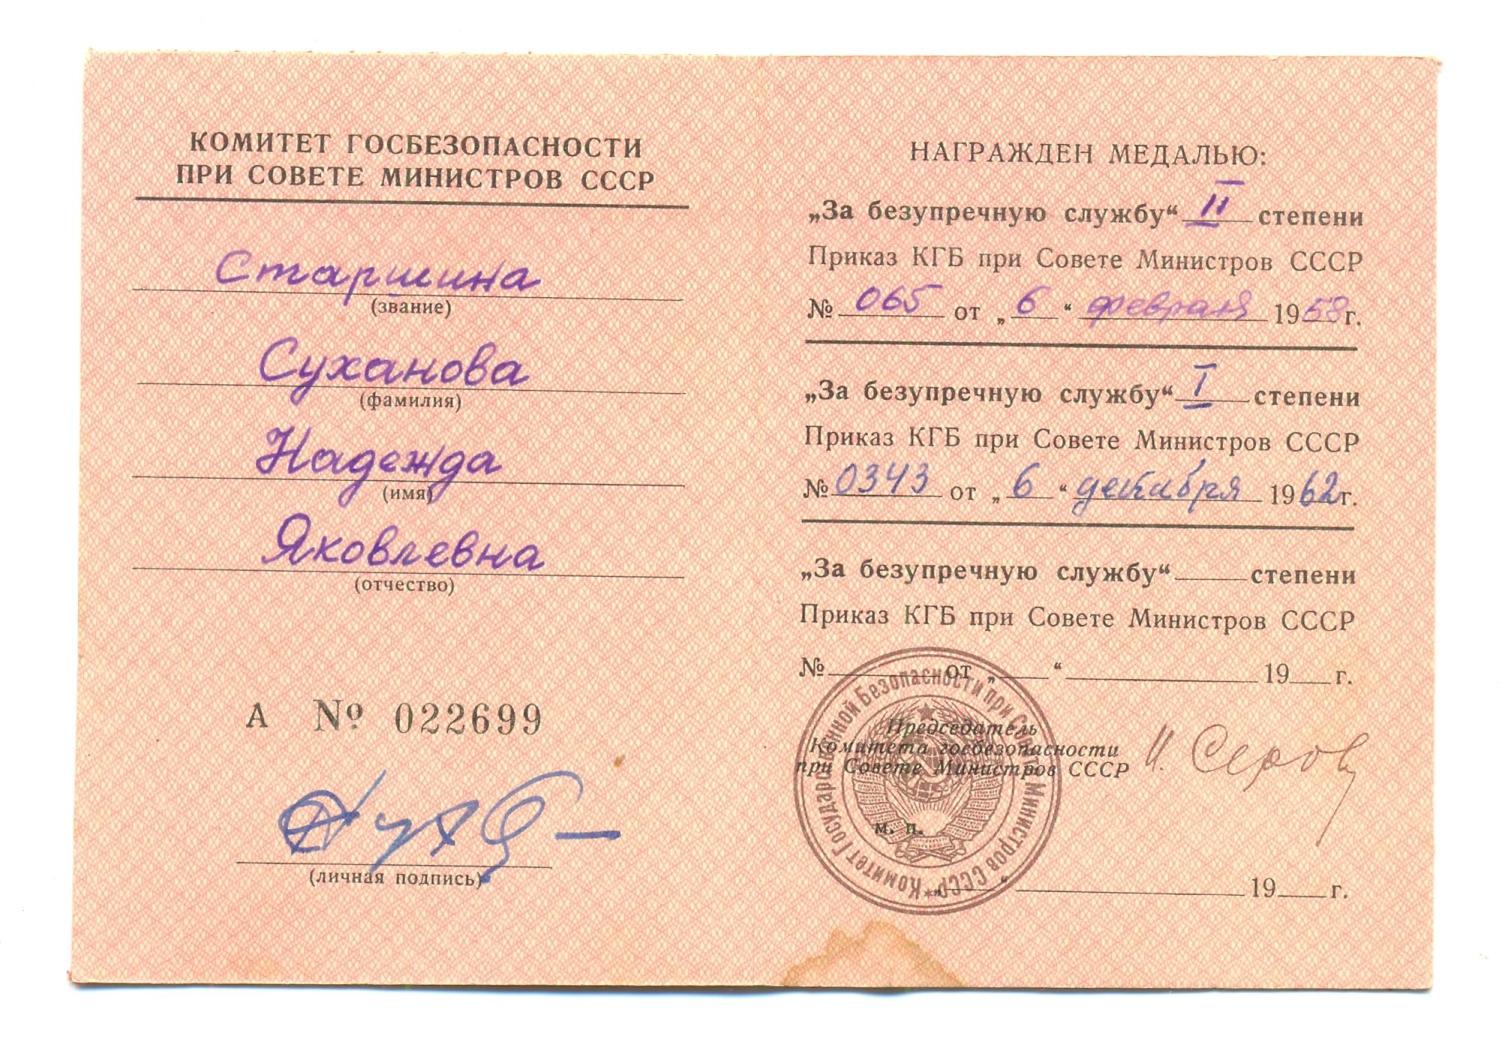 КОМИТЕТ ГОСБЕЗОПАСНОСТИ
ПРИ СОВЕТЕ МИНИСТРОВ СССР
Старшина
(звание)
Суханова
(фамилия)
Надежда
(имя)
Яковлевна
(отчество)
А № 022699
(личная подпись)
НАГРАЖДЕН МЕДАЛЬЮ:
„За безупречную службу“ II степени
Приказ КГБ при Совете Министров СССР
№ 065 от „6“ февраля 1958 г.
„За безупречную службу“ I степени
Приказ КГБ при Совете Министров СССР
№ 0343 от „6“ декабря 1962 г.
„За безупречную службу“ степени
Приказ КГБ при Совете Министров СССР
№ от „ “ 19 г.
Председатель
Комитета госбезопасности
при Совете Министров СССР И. Серов
м. п.
„ “ 19 г.
Комитет Государственной Безопасности при Совете Министров СССР